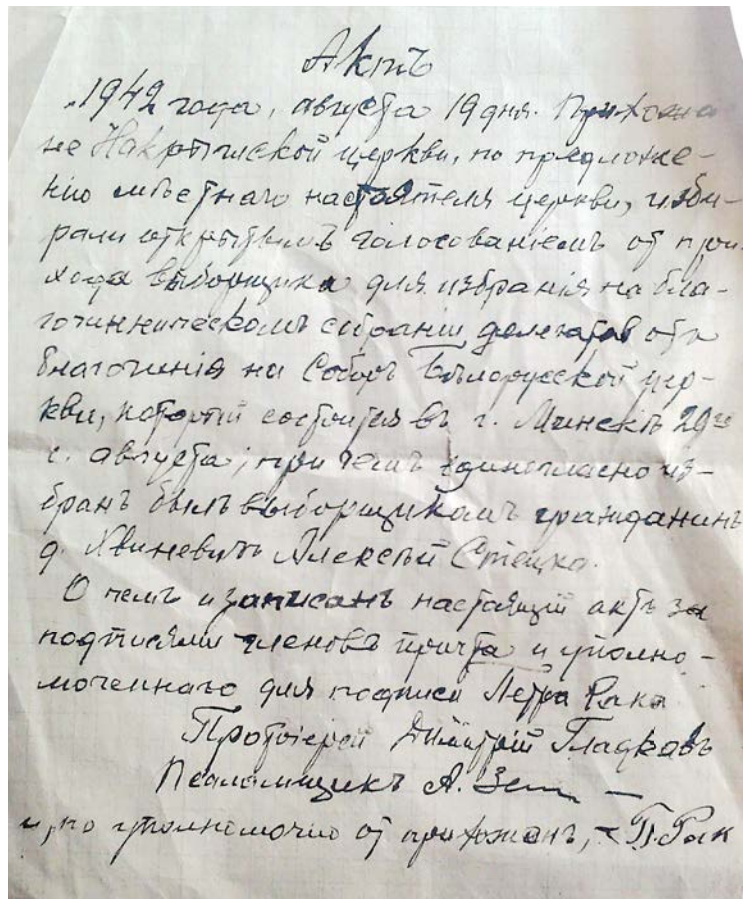 Актъ
1942 года, августа 19 дня. Прихожа
не Накрышской церкви, по предложе-
нію мѣстнаго настоятеля церкви, изби-
рали открытымъ голосованіемъ от при-
хода выборщика для избранія на бла-
гочинническомъ собраніи делегатов отъ
благочинія на Соборъ Бѣлорусской цер-
кви, который состоится въ г. Минскѣ 29го
с. августа; при чемъ единогласно из-
бранъ былъ выборщикомъ гражданинъ
д. Хвиневичъ Алексѣй Стецко.
О чемъ и записанъ настоящій актъ за
подписями членовъ причта и уполно-
моченнаго для подписи Петра Рака
Протоіерей Димитрій Гладковъ
Псаломщикъ А.
и, по уполномочію от прихожанъ, – П. Рак